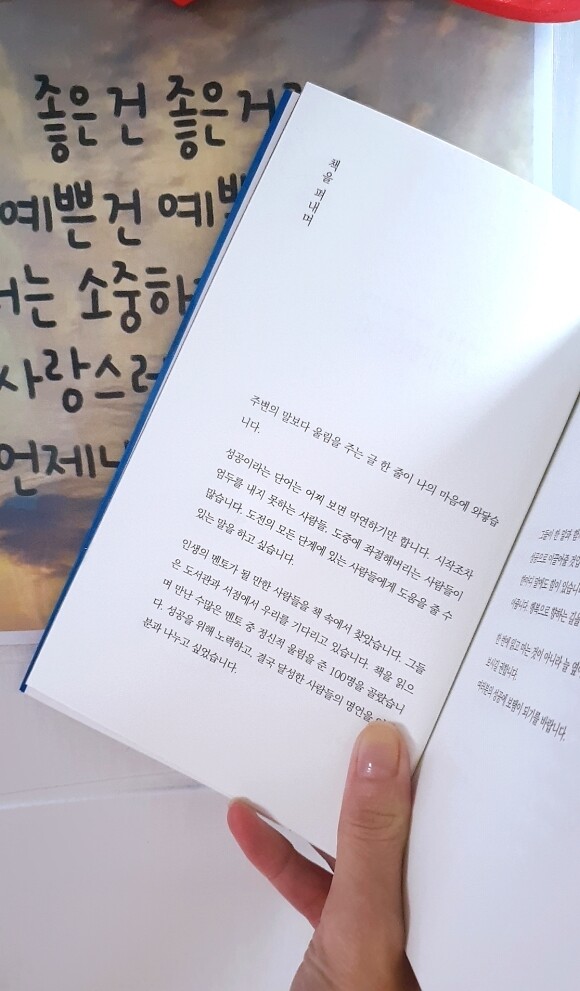 좋은건 좋은
예쁜건 예
는 소중하
사랑스러
언제나
책을 펴내며
주변의 말보다 울림을 주는 글 한 줄이 나의 마음에 와닿습
니다.
성공이라는 단어는 어찌 보면 막연하기만 합니다. 시작조차
엄두를 내지 못하는 사람들, 도중에 좌절해버리는 사람들이
많습니다. 도전의 모든 단계에 있는 사람들에게 도움을 줄 수
있는 말을 하고 싶습니다.
인생의 멘토가 될 만한 사람들을 책 속에서 찾았습니다. 그들
은 도서관과 서점에서 우리를 기다리고 있습니다. 책을 읽으
며 만난 수많은 멘토 중 정신적 울림을 준 100명을 골랐습니
다. 성공을 위해 노력하고, 결국 달성한 사람들의 명언을
분과 나누고 싶었습니다.
그들이 한 길과
성공으로 이끌어줄 것입
한 번에 읽고 마는 것이 아니라 늘
보시길 권합니다.
여러분의 성공에 보탬이 되기를 바랍니다.